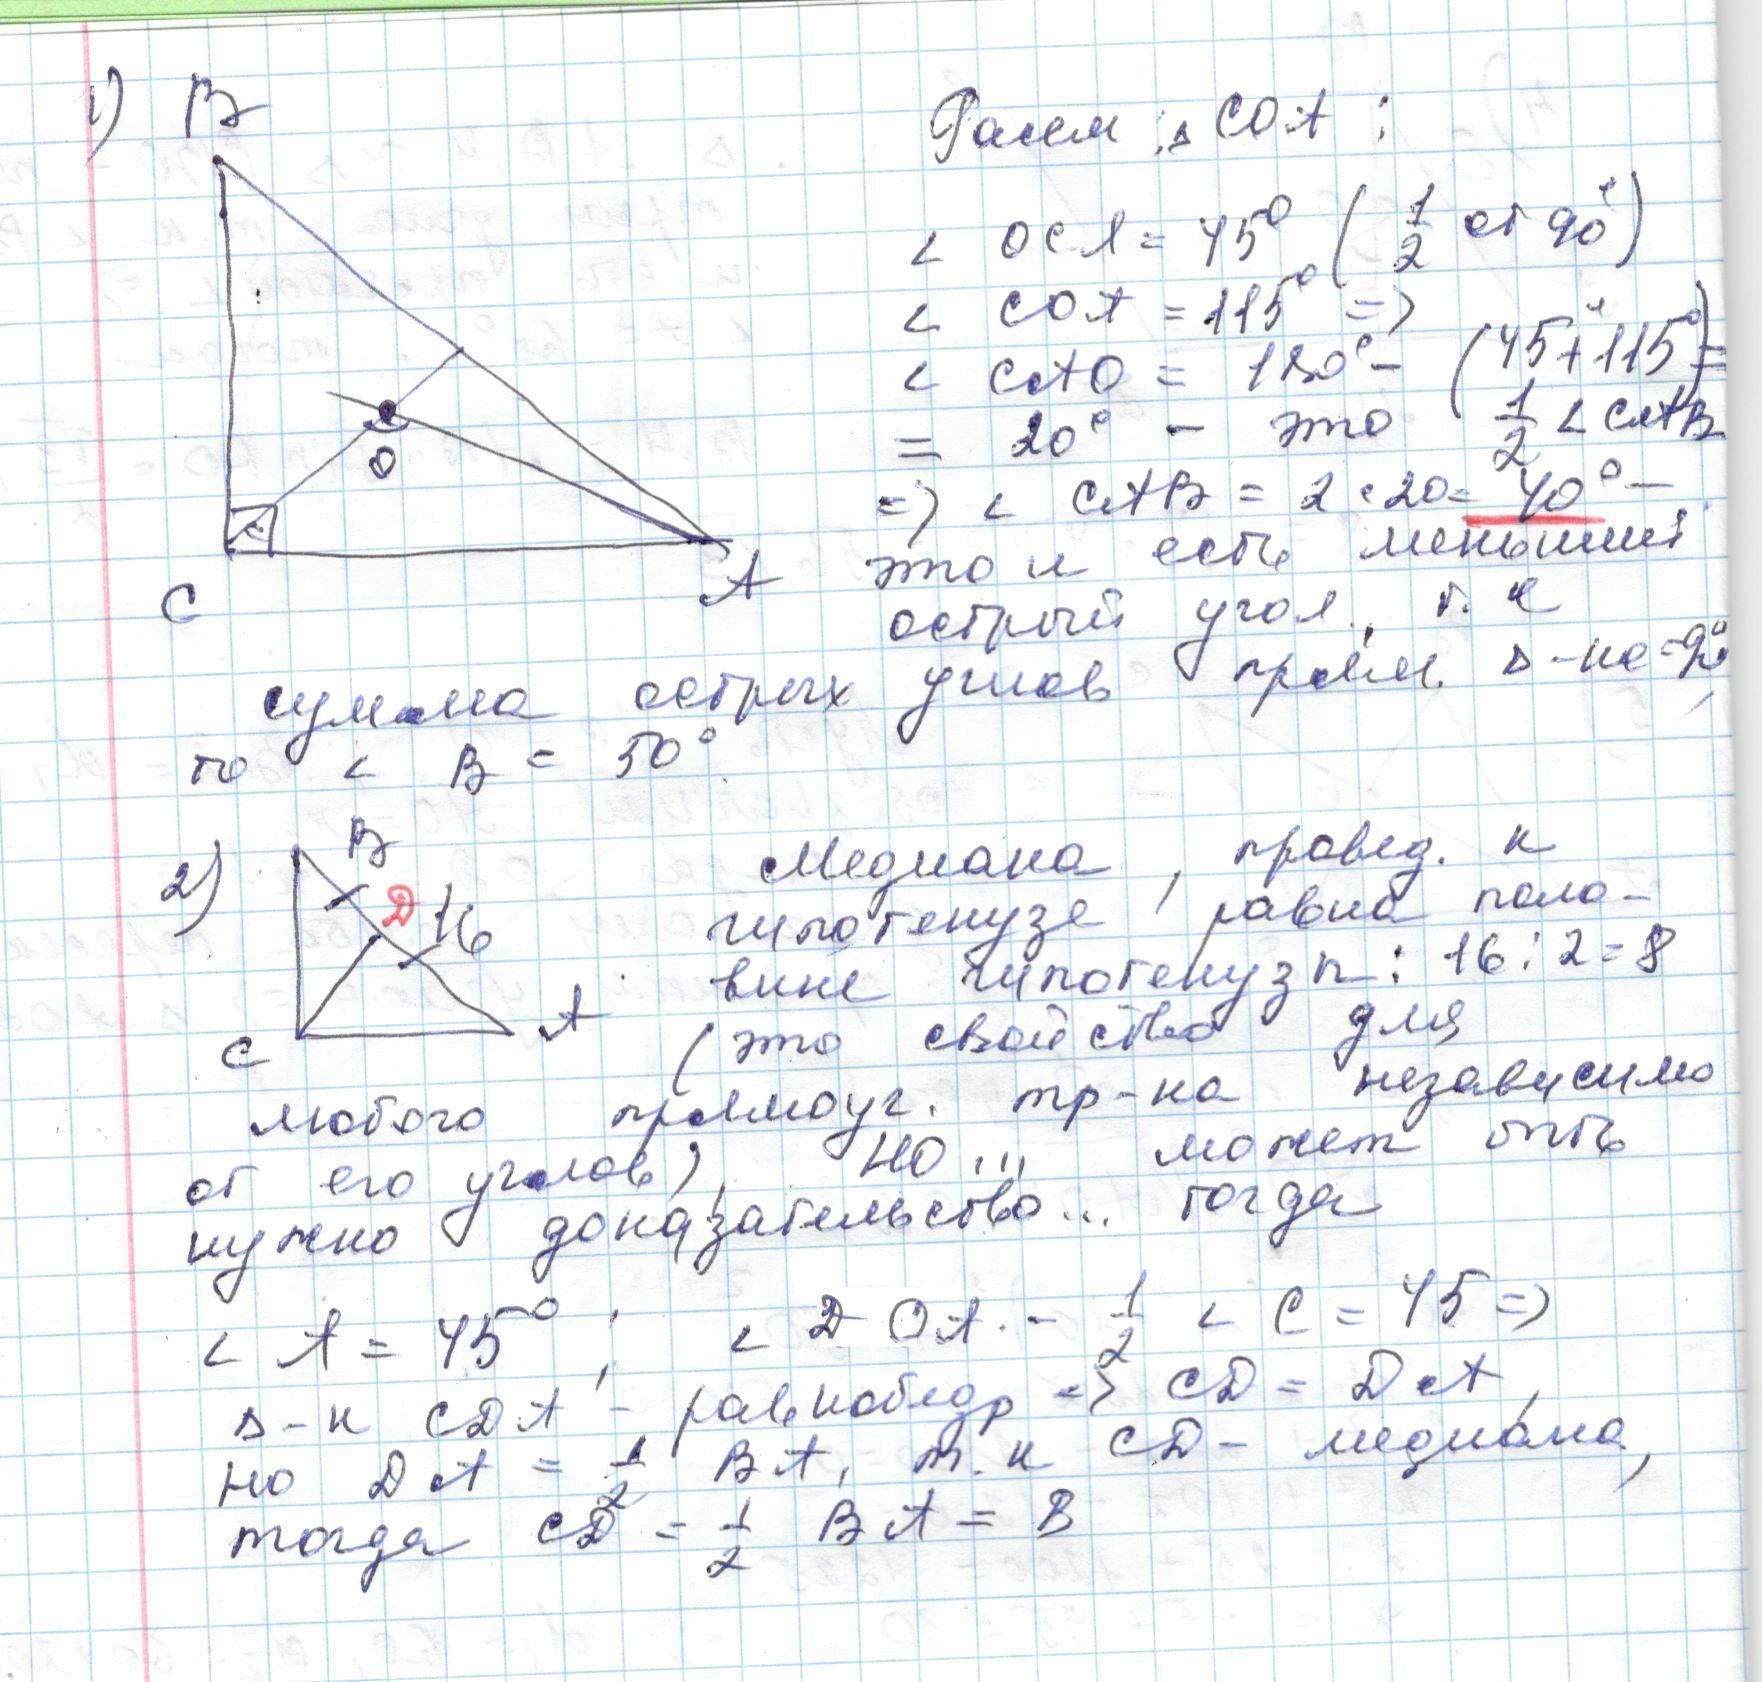 1) B
Рассм. ∆ COA :
< OCA = 45° ( 1/2 от 90° )
< COA = 115° =>
< CAO = 180° - (45°+115°) =
= 20° - это 1/2 < CAB
=> < CAB = 2·20 = 40° -
O
C
A
это и есть меньший
острый угол, т. к
сумма острых углов прям. ∆-ка = 90°,
то < B = 50°
2) B
D 16
C
A
Медиана, провед. к
гипотенузе, равна поло-
вине гипотенузы: 16:2=8
(это свойство для
любого прямоуг. тр-ка независимо
от его углов), но ... может быть
нужно доказательство... тогда
< A = 45° ; < DCA - 1/2 < C = 45 =>
∆-к CDA - равнобедр => CD = DA,
но DA = 1/2 BA, т. к CD - медиана,
тогда CD = 1/2 BA = 8